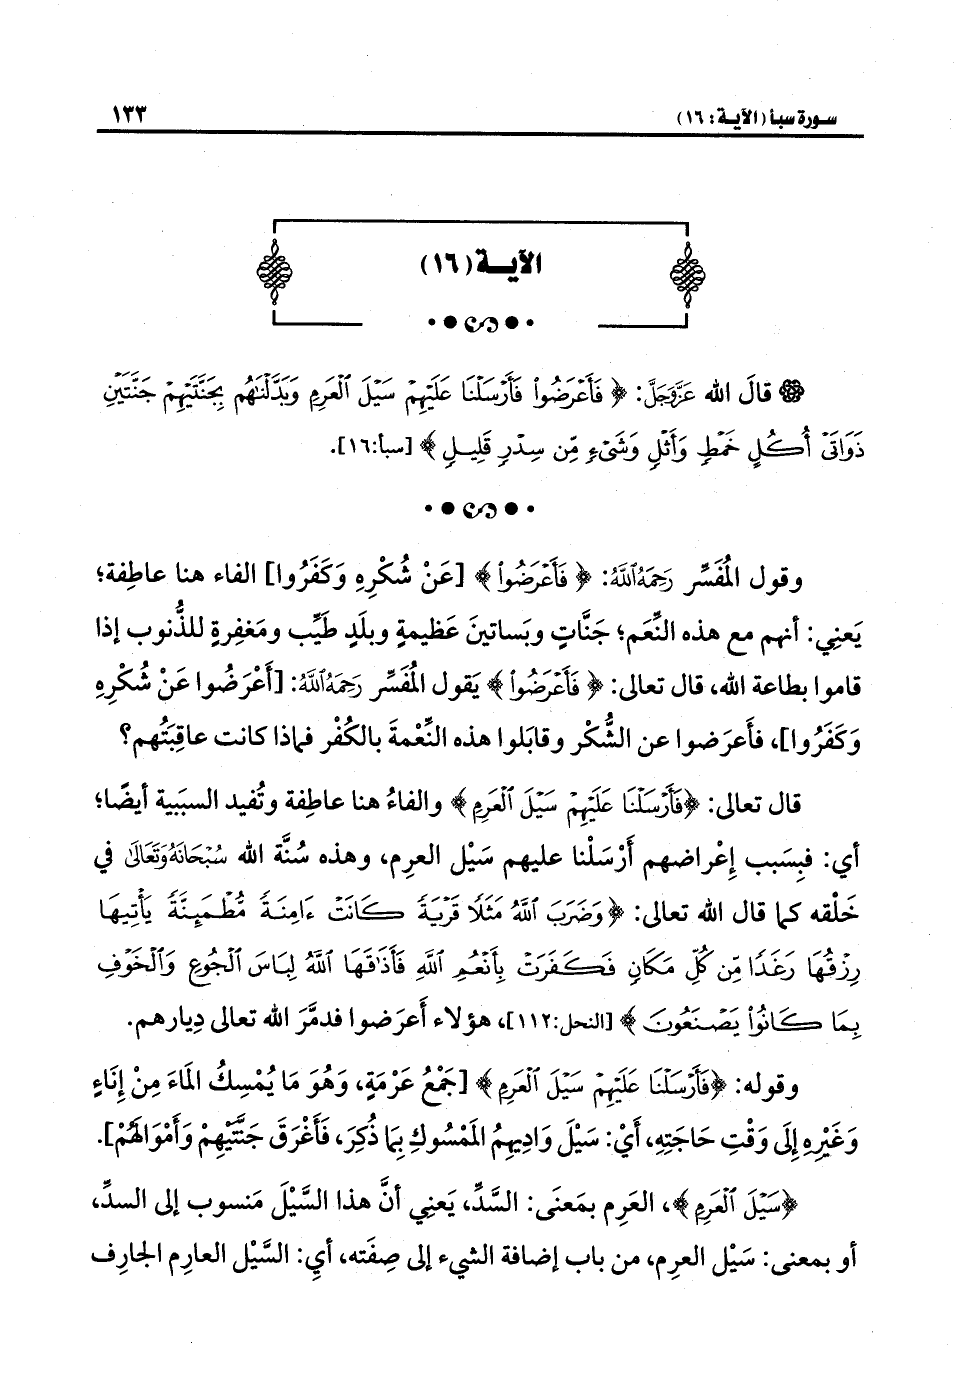 سورة سبأ (الآية: ١٦)
١٣٣
الآية (١٦)
قالَ الله عَزَّوَجَلَّ: ﴿ فَأَعْرَضُوا۟ فَأَرْسَلْنَا عَلَيْهِمْ سَيْلَ ٱلْعَرِمِ وَبَدَّلْنَٰهُم بِجَنَّتَيْهِمْ جَنَّتَيْنِ
ذَوَاتَىْ أُكُلٍ خَمْطٍ وَأَثْلٍ وَشَىْءٍ مِّن سِدْرٍ قَلِيلٍ ﴾ [سبأ:١٦].
وقول المُفَسِّر رَحِمَهُ ٱللَّهُ: ﴿ فَأَعْرَضُوا۟ ﴾ [عَنْ شُكْرِهِ وَكَفَرُوا] الفاء هنا عاطِفة؛
يَعنِي: أنهم مع هذه النِّعَم؛ جَنَّاتٍ وبَساتينَ عَظيمةٍ وبلَدٍ طَيِّب ومَغفِرةٍ للذُّنوب إذا
قاموا بطاعة الله، قال تعالى: ﴿ فَأَعْرَضُوا۟ ﴾ يَقول المُفَسِّر رَحِمَهُ ٱللَّهُ: [أَعْرَضُوا عَنْ شُكْرِهِ
وَكَفَرُوا]، فأَعرَضوا عن الشُّكْر وقابَلوا هذه النِّعْمةَ بالكُفْر فماذا كانت عاقِبَتُهم؟
قال تعالى: ﴿فَأَرْسَلْنَا عَلَيْهِمْ سَيْلَ ٱلْعَرِمِ ﴾ والفاءُ هنا عاطِفة وتُفيد السبَبية أيضًا؛
أي: فبِسَبب إِعْراضهم أَرْسَلْنا عليهم سَيْل العرِم، وهذه سُنَّة الله سُبْحَانَهُ وَتَعَالَى في
خَلْقه كما قال الله تعالى: ﴿ وَضَرَبَ ٱللَّهُ مَثَلًا قَرْيَةً كَانَتْ ءَامِنَةً مُّطْمَئِنَّةً يَأْتِيهَا
رِزْقُهَا رَغَدًا مِّن كُلِّ مَكَانٍ فَكَفَرَتْ بِأَنْعُمِ ٱللَّهِ فَأَذَٰقَهَا ٱللَّهُ لِبَاسَ ٱلْجُوعِ وَٱلْخَوْفِ
بِمَا كَانُوا۟ يَصْنَعُونَ ﴾ [النحل:١١٢]، هؤلاء أَعرَضوا فدمَّرَ الله تعالى دِيارهم.
وقوله: ﴿فَأَرْسَلْنَا عَلَيْهِمْ سَيْلَ ٱلْعَرِمِ ﴾ [جَمْعُ عَرْمَةٍ، وَهُوَ مَا يُمْسِكُ المَاءَ مِنْ إِنَاءٍ
وَغَيْرِهِ إِلَى وَقْتِ حَاجَتِهِ، أَيْ: سَيْلَ وَادِيهِمُ المَمْسُوكِ بِمَا ذُكِرَ، فَأَغْرَقَ جَنَّتَيْهِمْ وَأَمْوَالَهُمْ].
﴿سَيْلَ ٱلْعَرِمِ ﴾، العَرِم بمَعنَى: السَّدِّ، يَعنِي أنَّ هذا السَّيْلَ مَنسوب إلى السدِّ،
أو بمعنى: سَيْل العرِم، من باب إضافة الشيء إلى صِفَته، أيِ: السَّيْل العارِم الجارِف